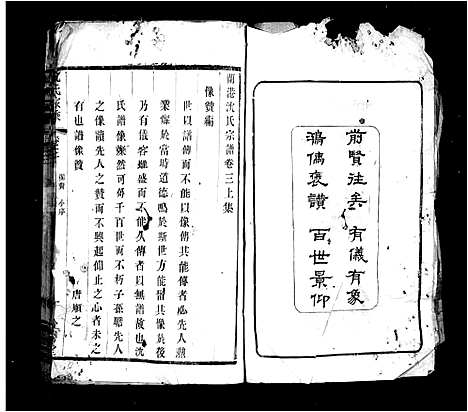 前賢往矣 有儀有象
鴻儒褒讚 百世景仰
蘭港沈氏宗譜卷三上集
像贊
世以譜傳而不能以像傳其能傳者必先人
業燦於當時道德鳴於斯世方能留其像於後
乃有儀容雖盛而不能久傳者以無譜故也沈
氏譜像燦然可傳千百世而不朽子孫瞻先人
之像讀先人之贊而不興起仰止之心者未之
有也譜像贊
唐順之
像贊 小序